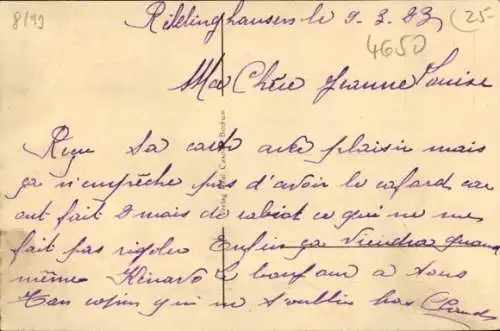 8/99
Reklinghausen le 9. 3. 23 (25-
4650
Ma Chère Jeanne Louise
Reçu ta carte avec plaisir mais
ça n'empêche pas d'avoir le cafard car
ont fait 2 mais de rabiot ce qui ne me
fait pas rigoler Enfin ça viendra quand
même le bonjour à tous
Ton copin qui ne t'oublie pas